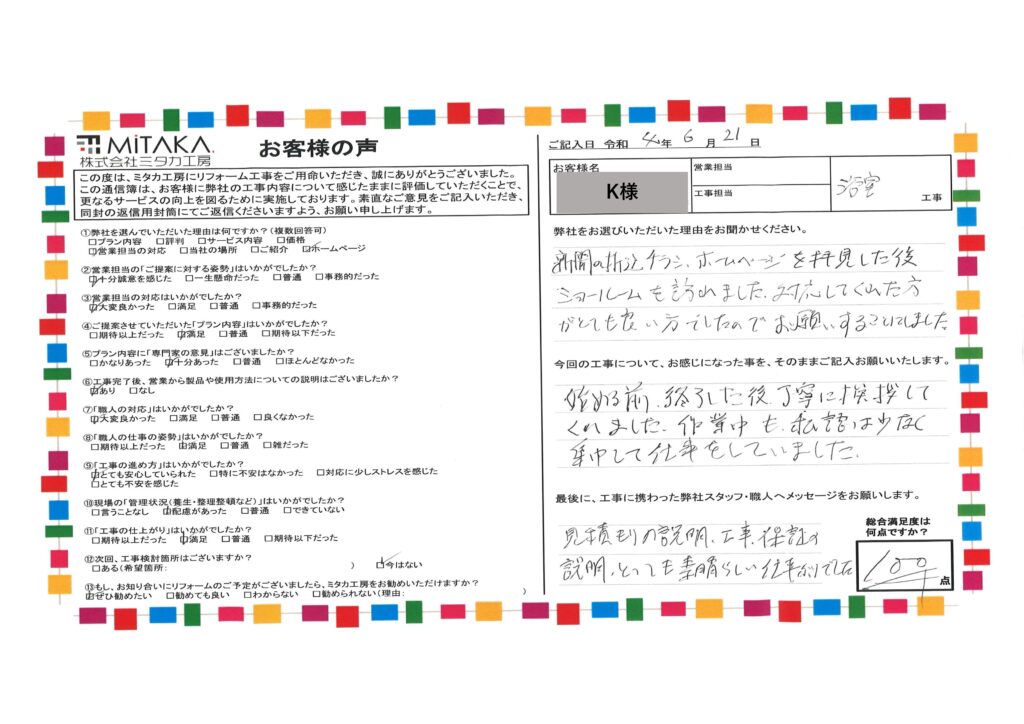 MiTAKA.
株式会社ミタカ工房
お客様の声
この度は、ミタカ工房にリフォーム工事をご用命いただき、誠にありがとうございました。
この通信簿は、お客様に弊社の工事内容について感じたままに評価していただくことで、
更なるサービスの向上を図るために実施しております。素直なご意見をご記入いただき、
同封の返信用封筒にてご返信くださいますよう、お願い申し上げます。
①弊社を選んでいただいた理由は何ですか？(複数回答可)
□プラン内容 □評判 □サービス内容 □価格
☑営業担当の対応 □当社の場所 □ご紹介 ☑ホームページ
②営業担当の「ご提案に対する姿勢」はいかがでしたか？
☑十分誠意を感じた □一生懸命だった □普通 □事務的だった
③営業担当の対応はいかがでしたか？
☑大変良かった □満足 □普通 □事務的だった
④ご提案させていただいた「プラン内容」はいかがでしたか？
□期待以上だった ☑満足 □普通 □期待以下だった
⑤プラン内容に「専門家の意見」はございましたか？
□かなりあった ☑十分あった □普通 □ほとんどなかった
⑥工事完了後、営業から製品や使用方法についての説明はございましたか？
☑あり □なし
⑦「職人の対応」はいかがでしたか？
☑大変良かった □満足 □普通 □良くなかった
⑧「職人の仕事の姿勢」はいかがでしたか？
□期待以上だった ☑満足 □普通 □雑だった
⑨「工事の進め方」はいかがでしたか？
☑とても安心していられた □特に不安はなかった □対応に少しストレスを感じた
□とても不安を感じた
⑩現場の「管理状況(養生・整理整頓など)」はいかがでしたか？
□言うことなし ☑配慮があった □普通 □できていない
⑪「工事の仕上がり」はいかがでしたか？
□期待以上だった ☑満足 □普通 □期待以下だった
⑫次回、工事検討箇所はございますか？
□ある(希望箇所: ) ☑今はない
⑬もし、お知り合いにリフォームのご予定がございましたら、ミタカ工房をお勧めいただけますか？
☑ぜひ勧めたい □勧めても良い □わからない □勧められない(理由: )
ご記入日 令和 4年 6月 21日
お客様名
K様
営業担当
工事担当
浴室
工事
弊社をお選びいただいた理由をお聞かせください。
新聞の折込チラシ、ホームページを拝見した後
ショールームも訪れました。対応してくれた方
がとても良い方でしたのでお願いすることにしました
今回の工事について、お感じになった事を、そのままご記入お願いいたします。
始める前、終了した後丁寧に挨拶して
くれました。作業中も、私語は少なく
集中して仕事をしていました。
最後に、工事に携わった弊社スタッフ・職人へメッセージをお願いします。
見積もりの説明、工事、保証の
説明、とっても素晴らしい仕事ぶりでした
総合満足度は
何点ですか？
100点